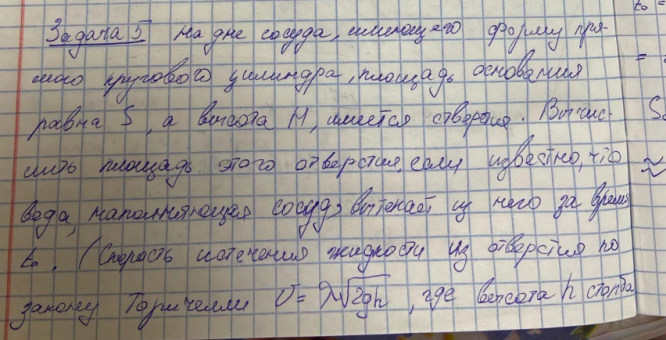 Задача 5 На дне сосуда, имеющего форму пря-
мого кругового цилиндра, площадь основания
равна S, а высота H, имеется отверстие. Вычис-
лить площадь этого отверстия, если известно, что
вода, наполняющая сосуд, вытекает из него за время
t₀. (Скорость истечения жидкости из отверстия по
закону Торичелли υ = λ√2gh, где высота h столба
t₀ =
=
S
≈